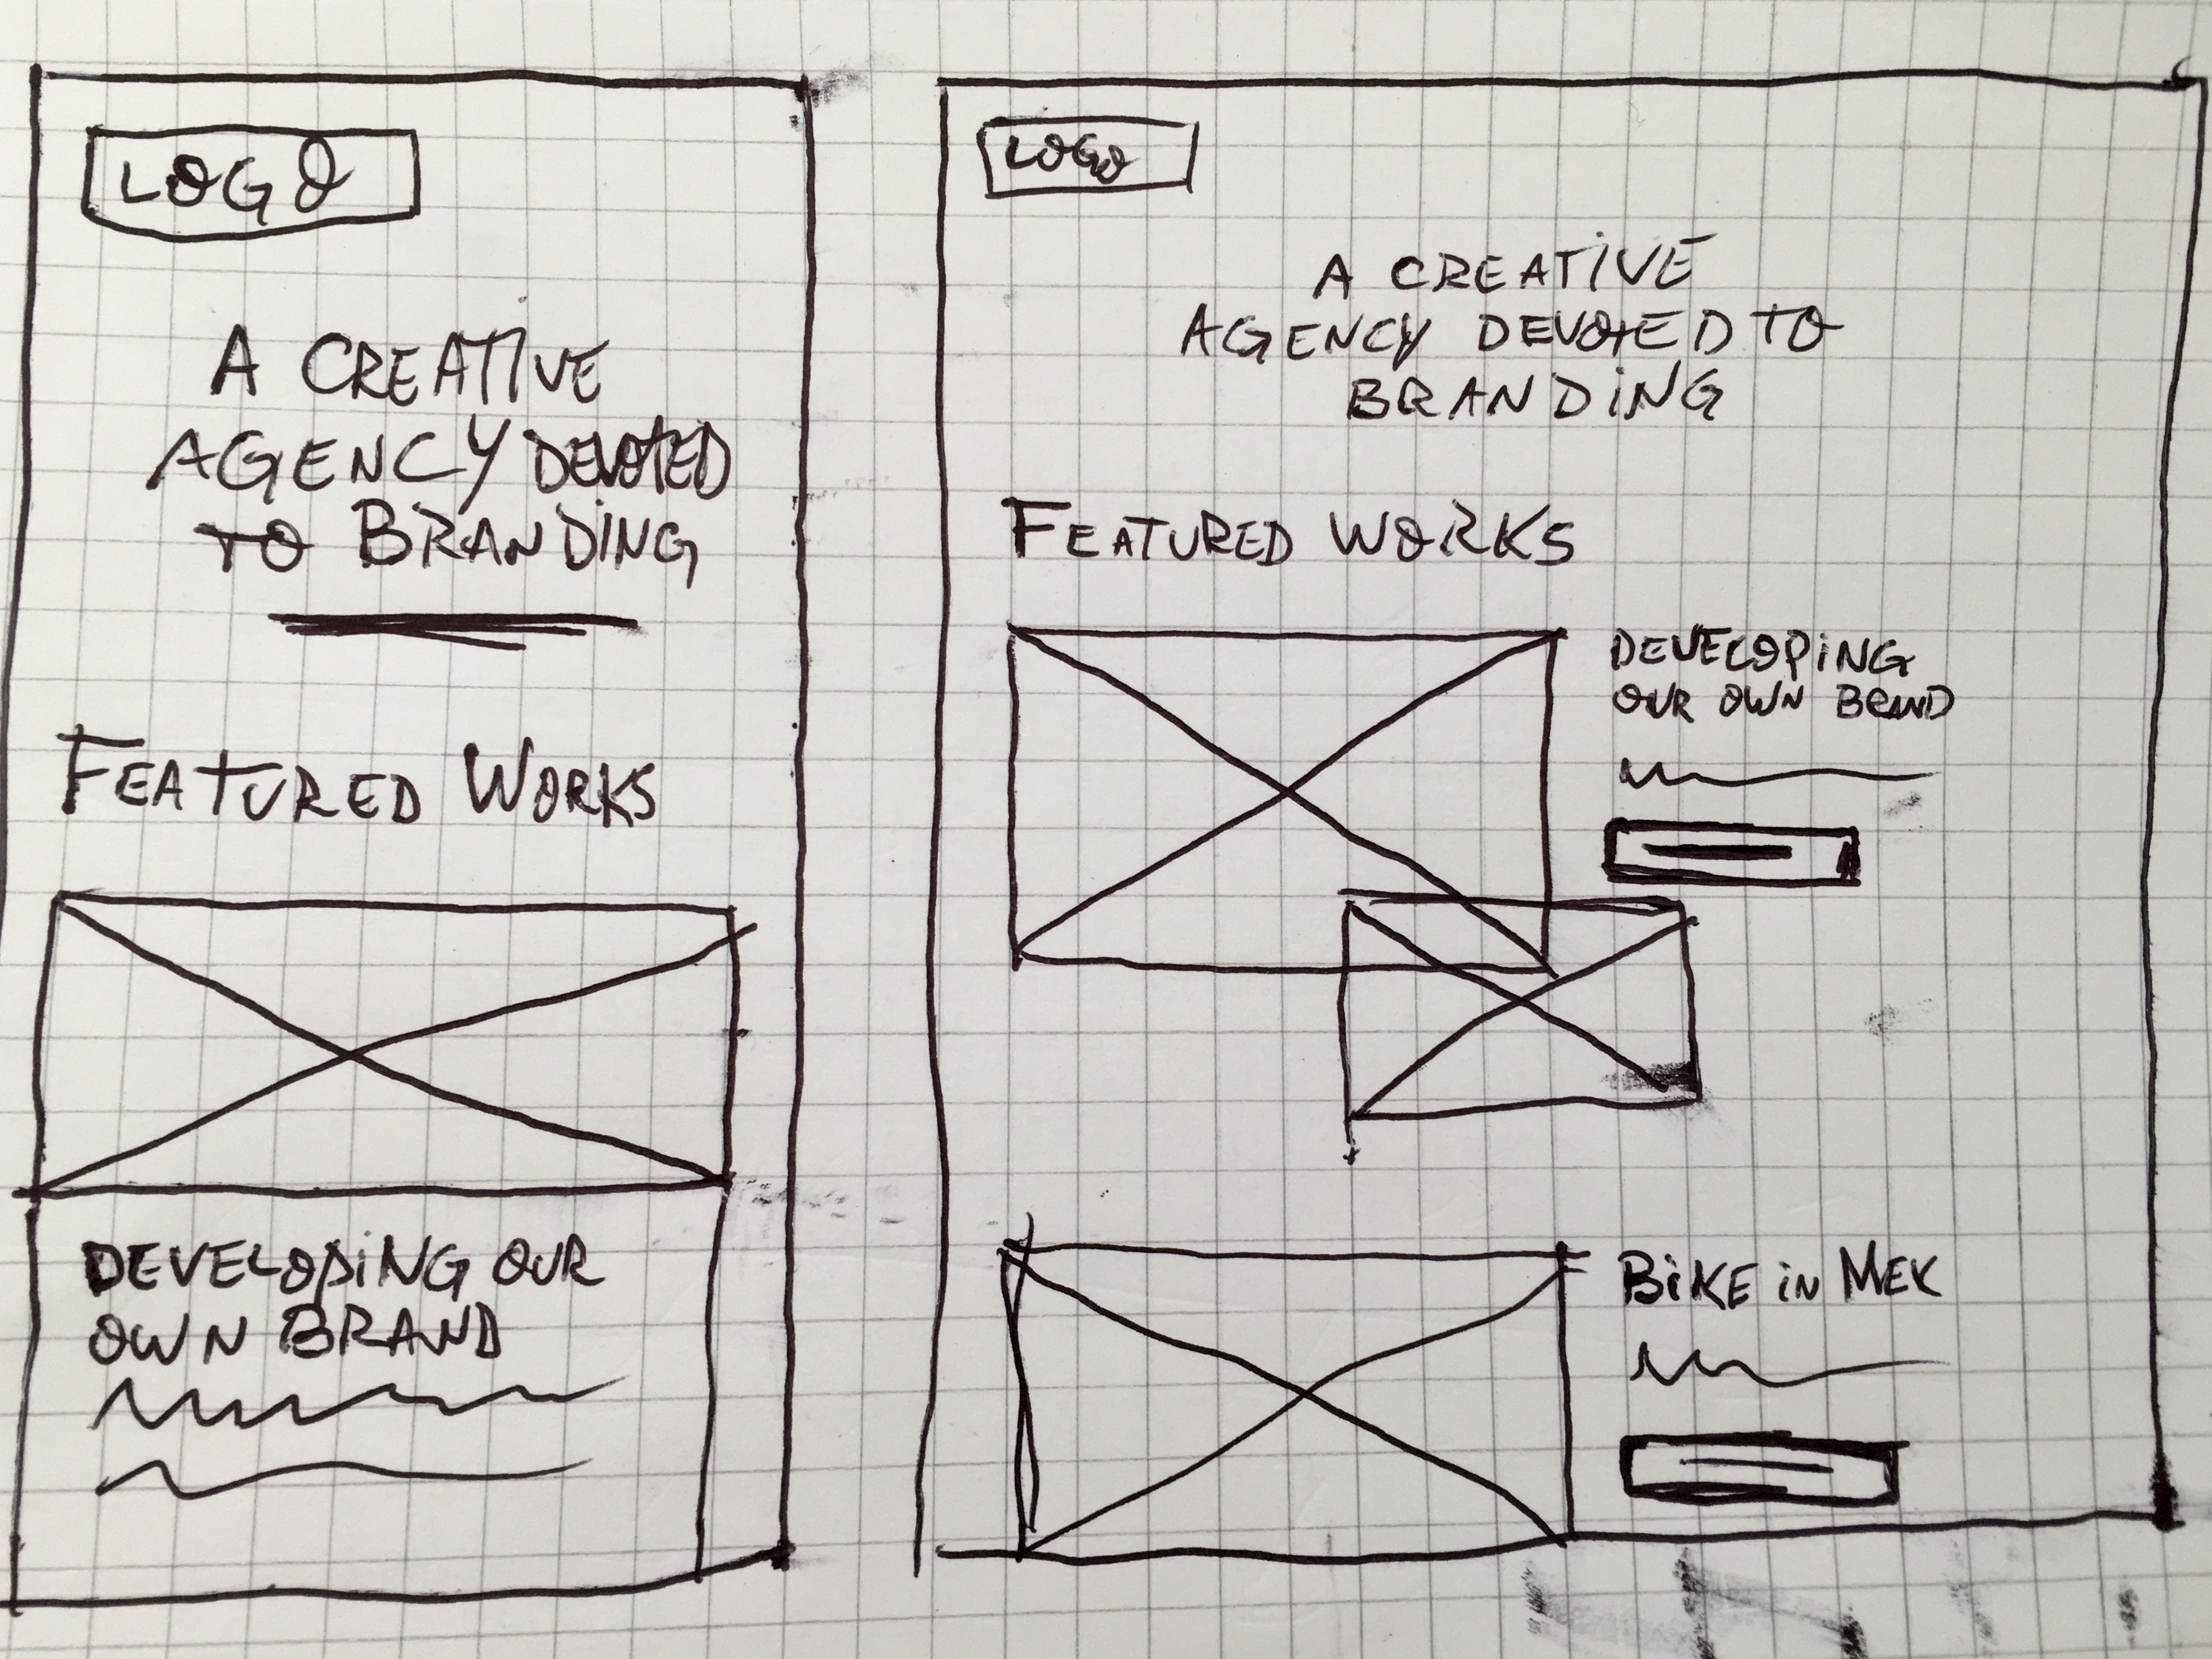 LOGO
A CREATIVE
AGENCY DEVOTED
TO BRANDING
FEATURED WORKS
DEVELOPING OUR
OWN BRAND
LOGO
A CREATIVE
AGENCY DEVOTED TO
BRANDING
FEATURED WORKS
DEVELOPING
OUR OWN BRAND
BIKE IN MEK